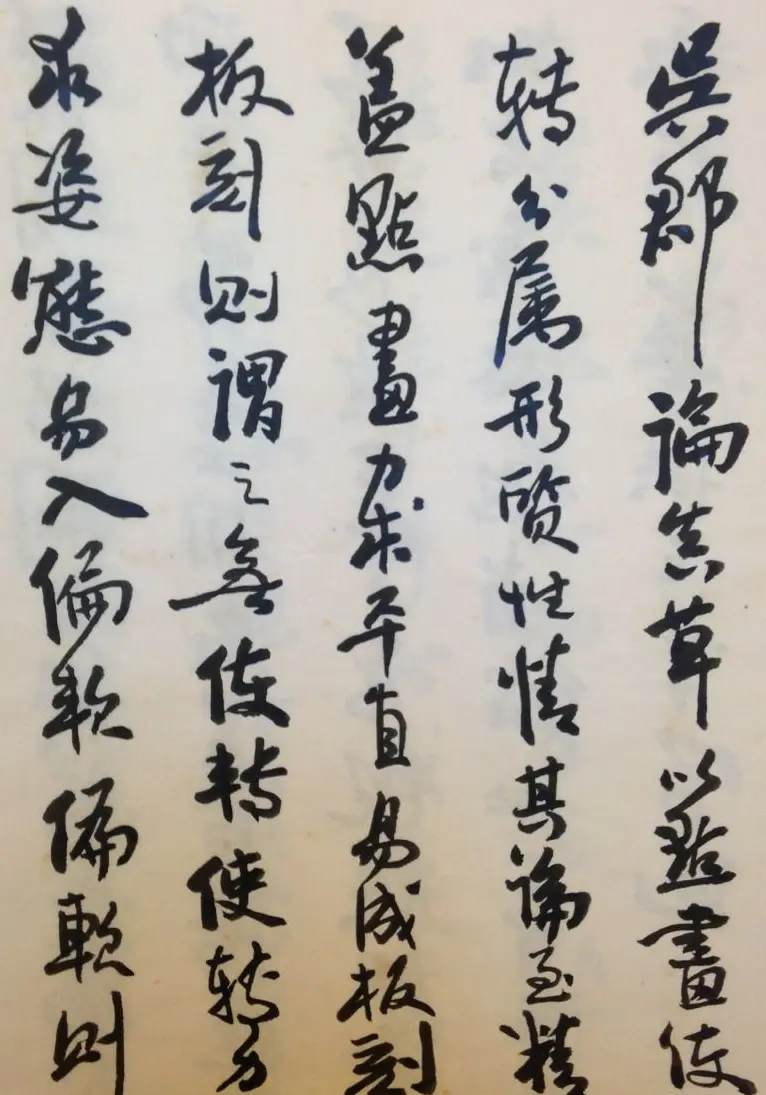 吳郡論真草以點畫使
轉分属形質性情其論至精
蓋點畫力求平直易成板刻
板刻則謂之無使轉使轉力
求姿態易入偏軟偏軟則